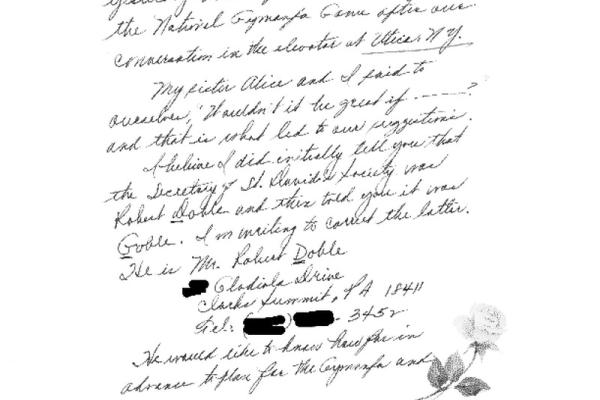 the National Gymanfa Ganu after our
conversation in the elevator at Utica, N.Y.
My sister Alice and I said to
ourselves, 'Wouldn't it be great if ------?
and that is what led to our suggestions.
I believe I did initially tell you that
the Secretary of St. David's Society was
Robert Doble and then told you it was
Goble. I'm writing to correct the latter.
He is Mr. Robert Doble
Gladiola Drive
Clarks Summit, PA 18411
Tel: ( ) - 3452
He would like to know how far in
advance to plan for the Gymanfa and